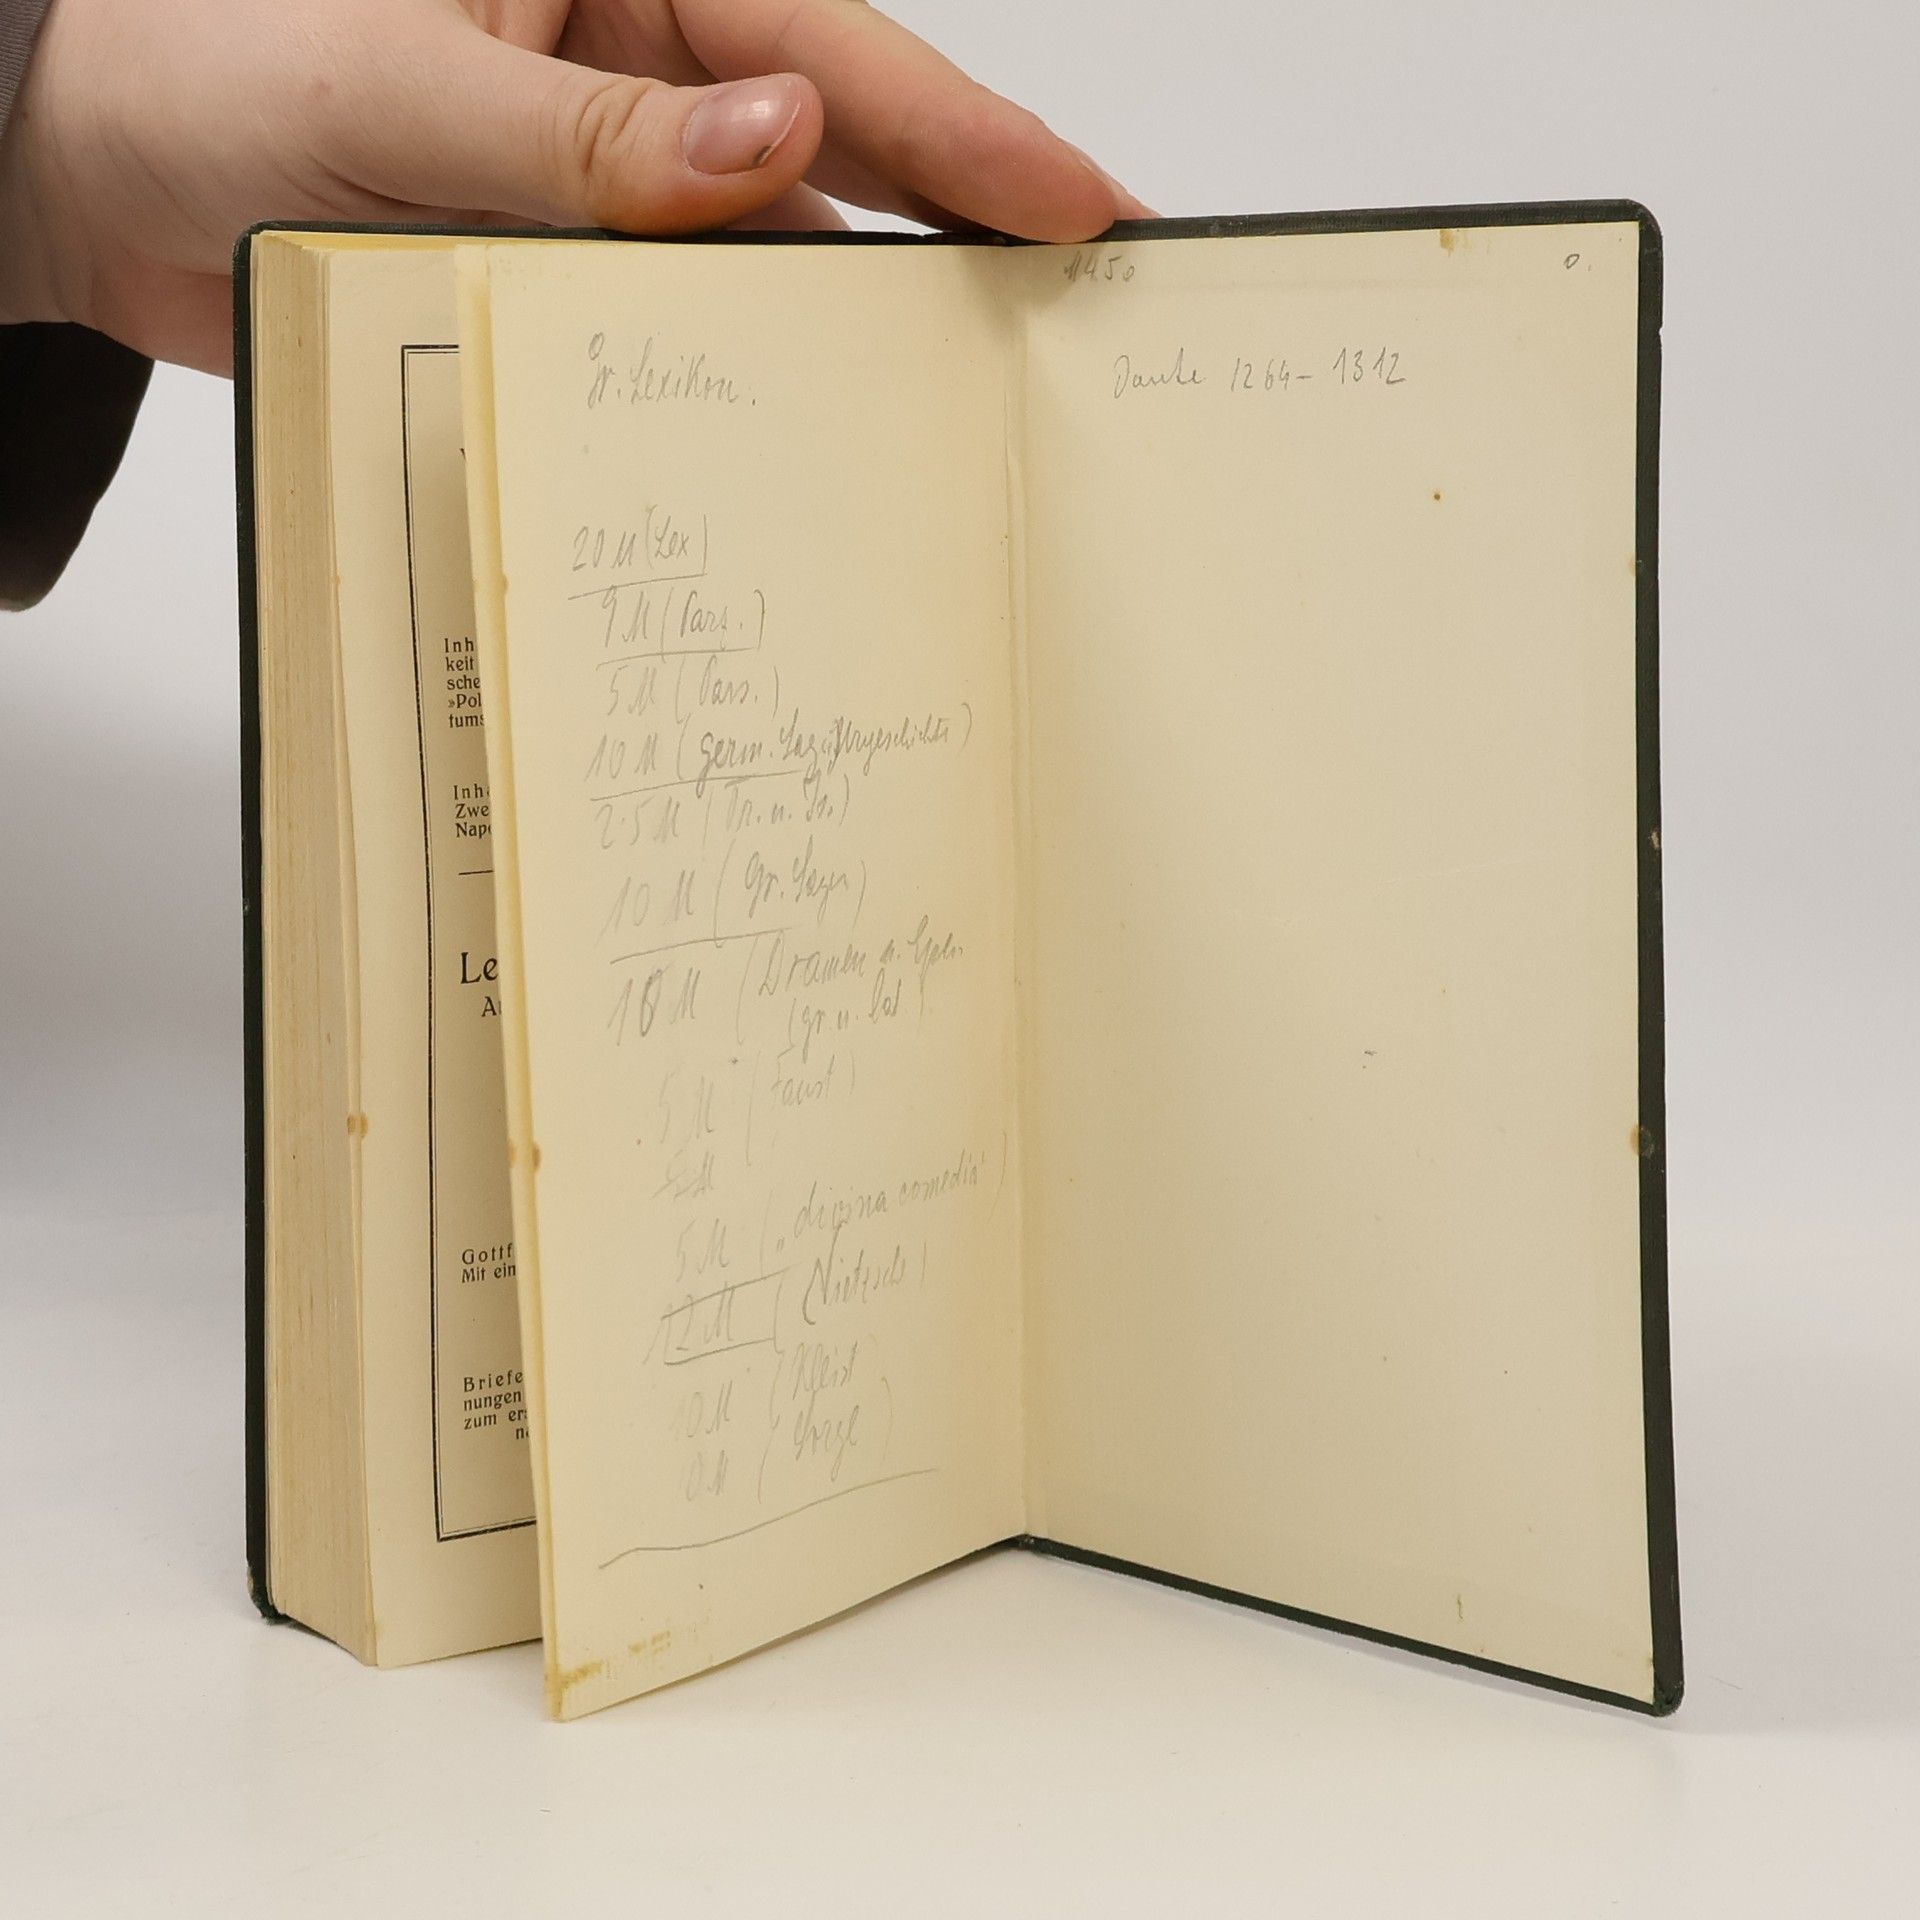 Inh
keit
sche
»Pol
tums
Inha
Zwe
Napo
Le
A
Gottf
Mit ein
Briefe
nungen
zum ers
na
Gr. Lexikon.
20 M (Lex)
9 M (Pars.)
5 M (Pars.)
10 M (germ. Sag. Urgeschichte)
2.5 M (Tr. u. Is.)
10 M (Gr. Sagen)
10 M (Dramen u.
(gr. u. lat.)
5 M (Faust)
5 M
5 M („divina comedia“)
12 M (Nietzsche)
10 M (Kleist
10 M
1450
0.
Dante 1264 – 1312